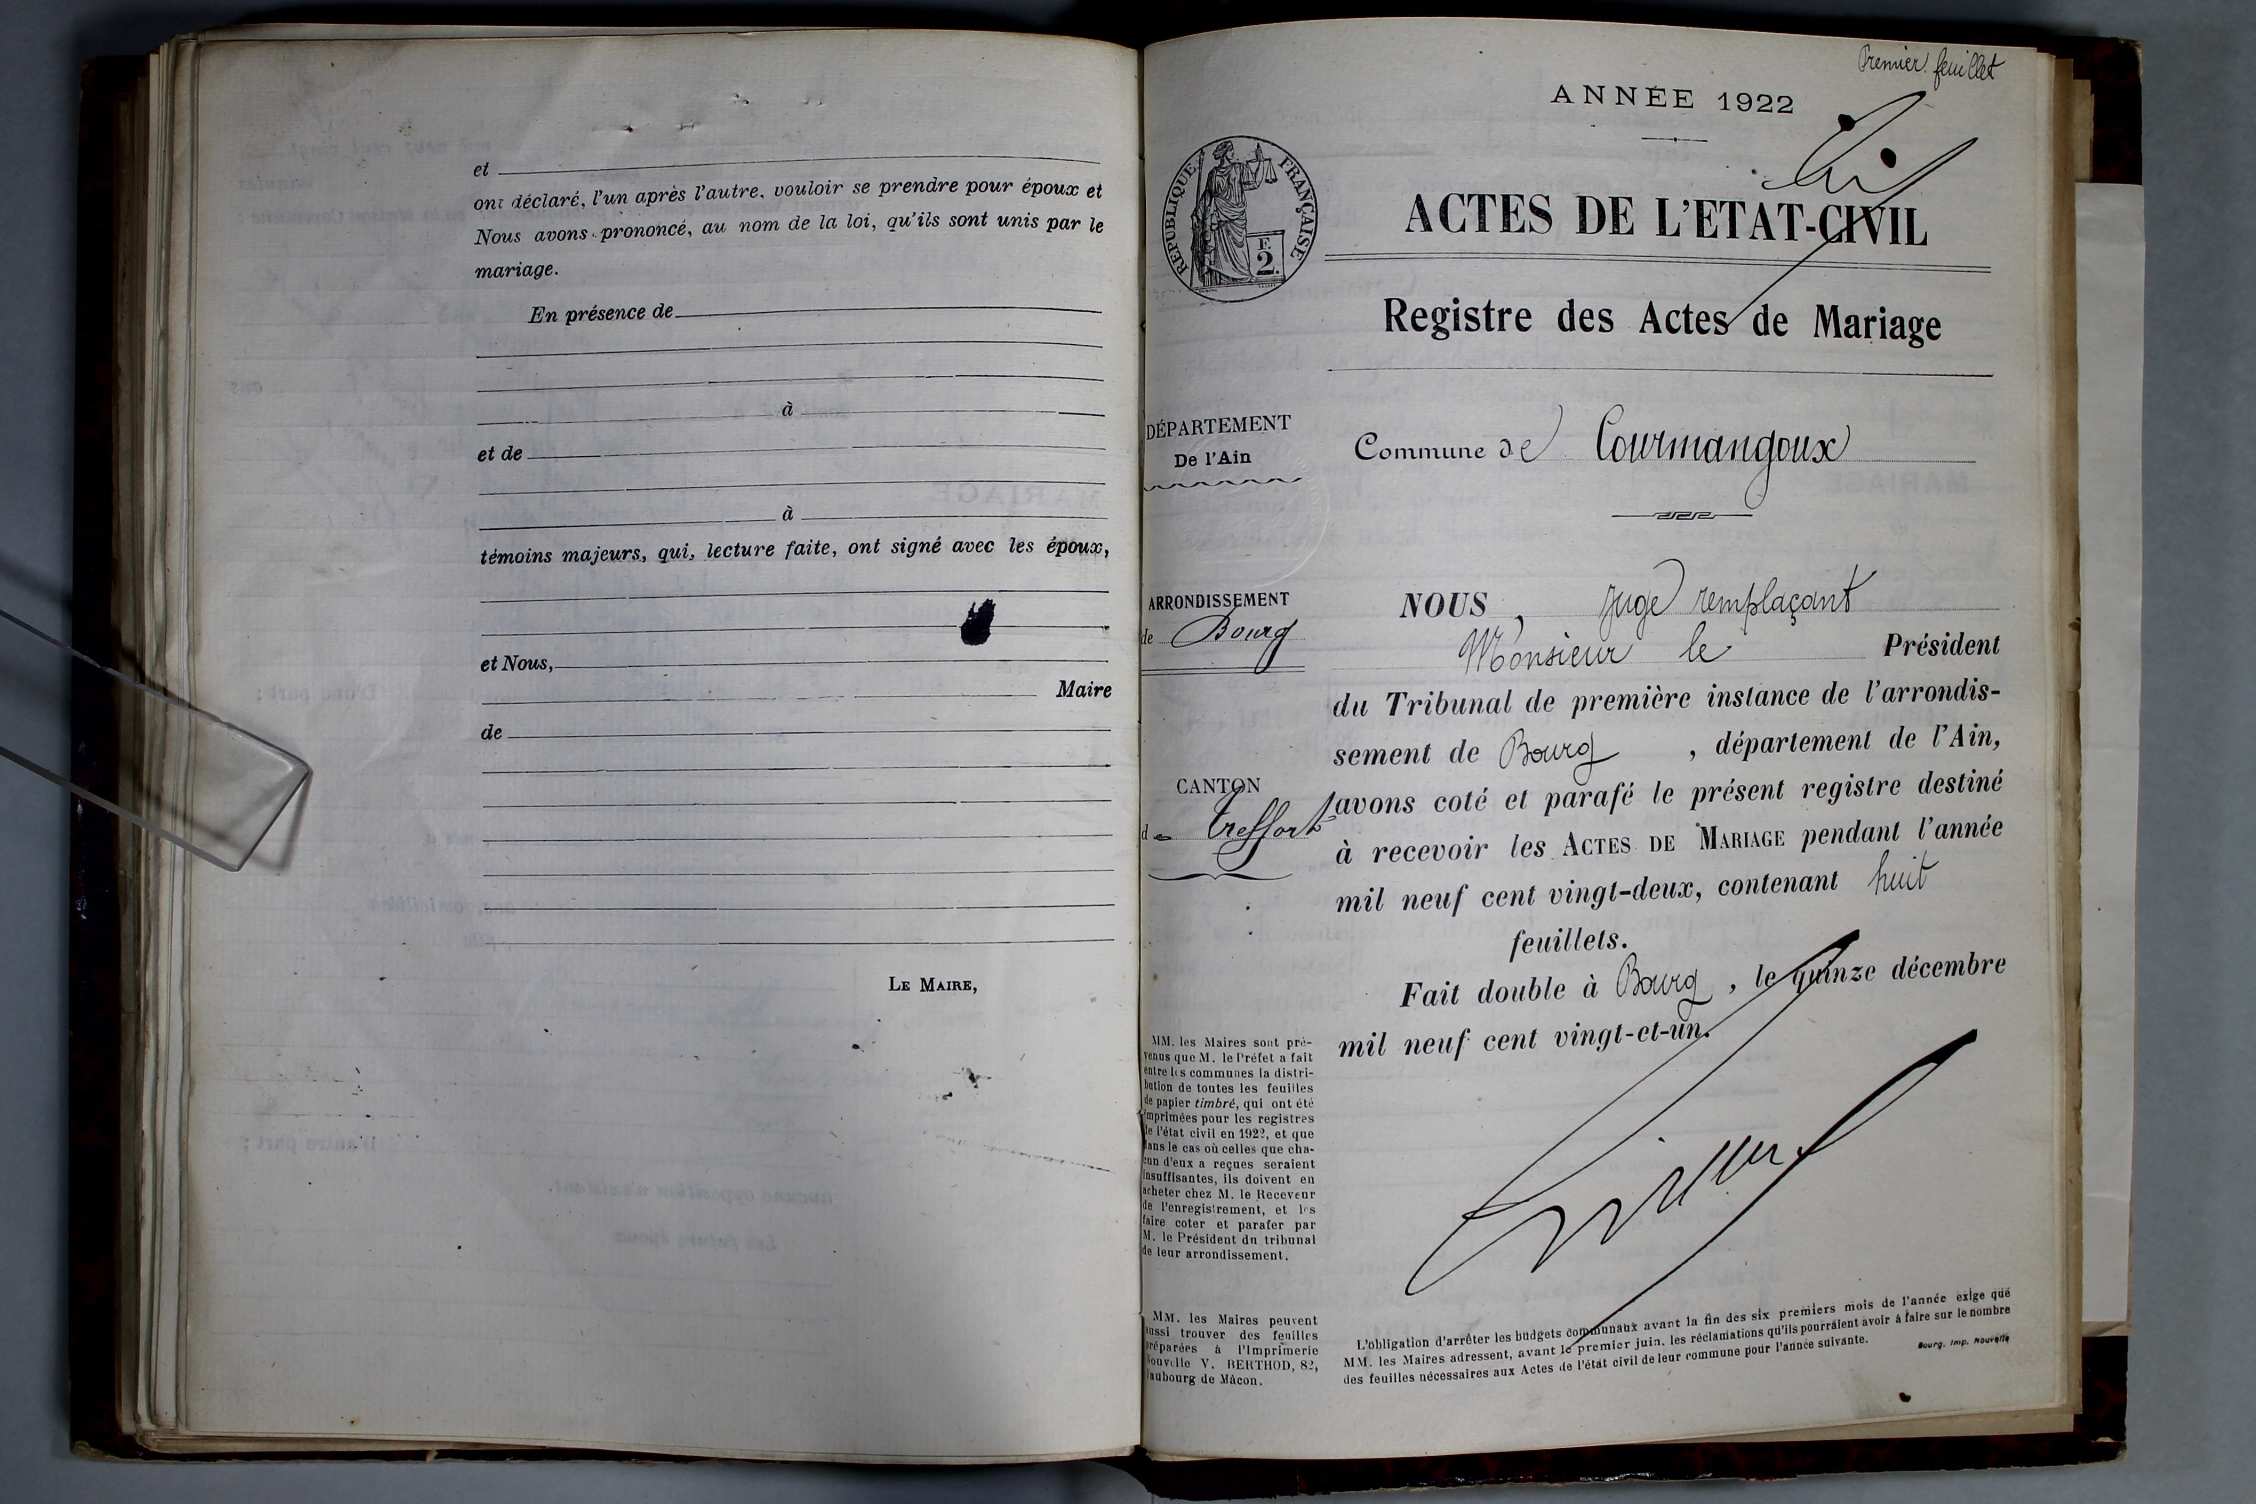 et
ont déclaré, l'un après l'autre, vouloir se prendre pour époux et
Nous avons prononcé, au nom de la loi, qu'ils sont unis par le
mariage.
En présence de
à
et de
à
témoins majeurs, qui, lecture faite, ont signé avec les époux,
et Nous,
Maire
de
LE MAIRE,
Premier feuillet
ANNÉE 1922
RÉPUBLIQUE FRANÇAISE
F.
2.
ACTES DE L'ETAT-CIVIL
Registre des Actes de Mariage
DÉPARTEMENT
De l'Ain
Commune de Courmangoux
ARRONDISSEMENT
de Bourg
CANTON
de Treffort
NOUS, Juge remplaçant
Monsieur le Président
du Tribunal de première instance de l'arrondis-
sement de Bourg, département de l'Ain,
avons coté et parafé le présent registre destiné
à recevoir les ACTES DE MARIAGE pendant l'année
mil neuf cent vingt-deux, contenant huit
feuillets.
Fait double à Bourg, le quinze décembre
mil neuf cent vingt-et-un.
MM. les Maires sont pré-
venus que M. le Préfet a fait
entre les communes la distri-
bution de toutes les feuilles
de papier timbré, qui ont été
imprimées pour les registres
de l'état civil en 1922, et que
dans le cas où celles que cha-
cun d'eux a reçues seraient
insuffisantes, ils doivent en
acheter chez M. le Receveur
de l'enregistrement, et les
faire coter et parafer par
M. le Président du tribunal
de leur arrondissement.
MM. les Maires peuvent
aussi trouver des feuilles
préparées à l'Imprimerie
Nouvelle V. BERTHOD, 82,
faubourg de Mâcon.
L'obligation d'arrêter les budgets communaux avant la fin des six premiers mois de l'année exige que
MM. les Maires adressent, avant le premier juin, les réclamations qu'ils pourraient avoir à faire sur le nombre
des feuilles nécessaires aux Actes de l'état civil de leur commune pour l'année suivante.
Bourg, Imp. Nouvelle